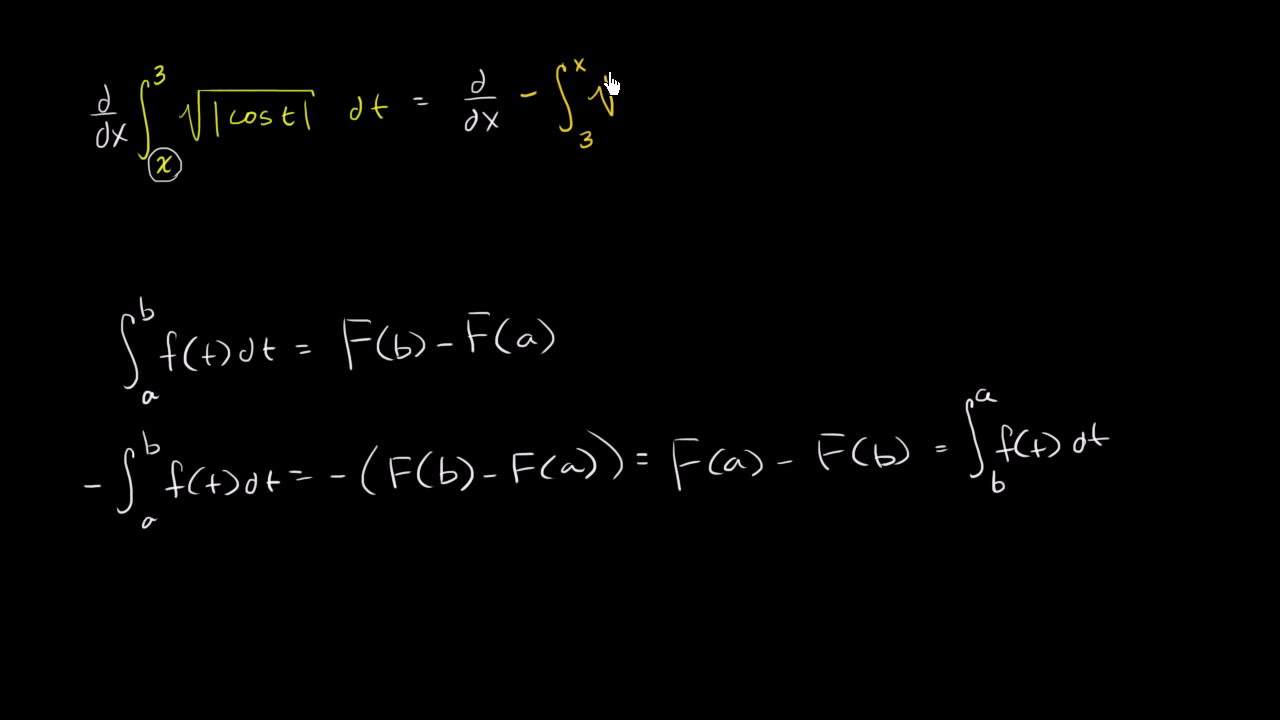 d/dx ∫_x^3 √|cos t| dt = d/dx - ∫_3^x √
∫_a^b f(t)dt = F(b) - F(a)
- ∫_a^b f(t)dt = - (F(b) - F(a)) = F(a) - F(b) = ∫_b^a f(t) dt